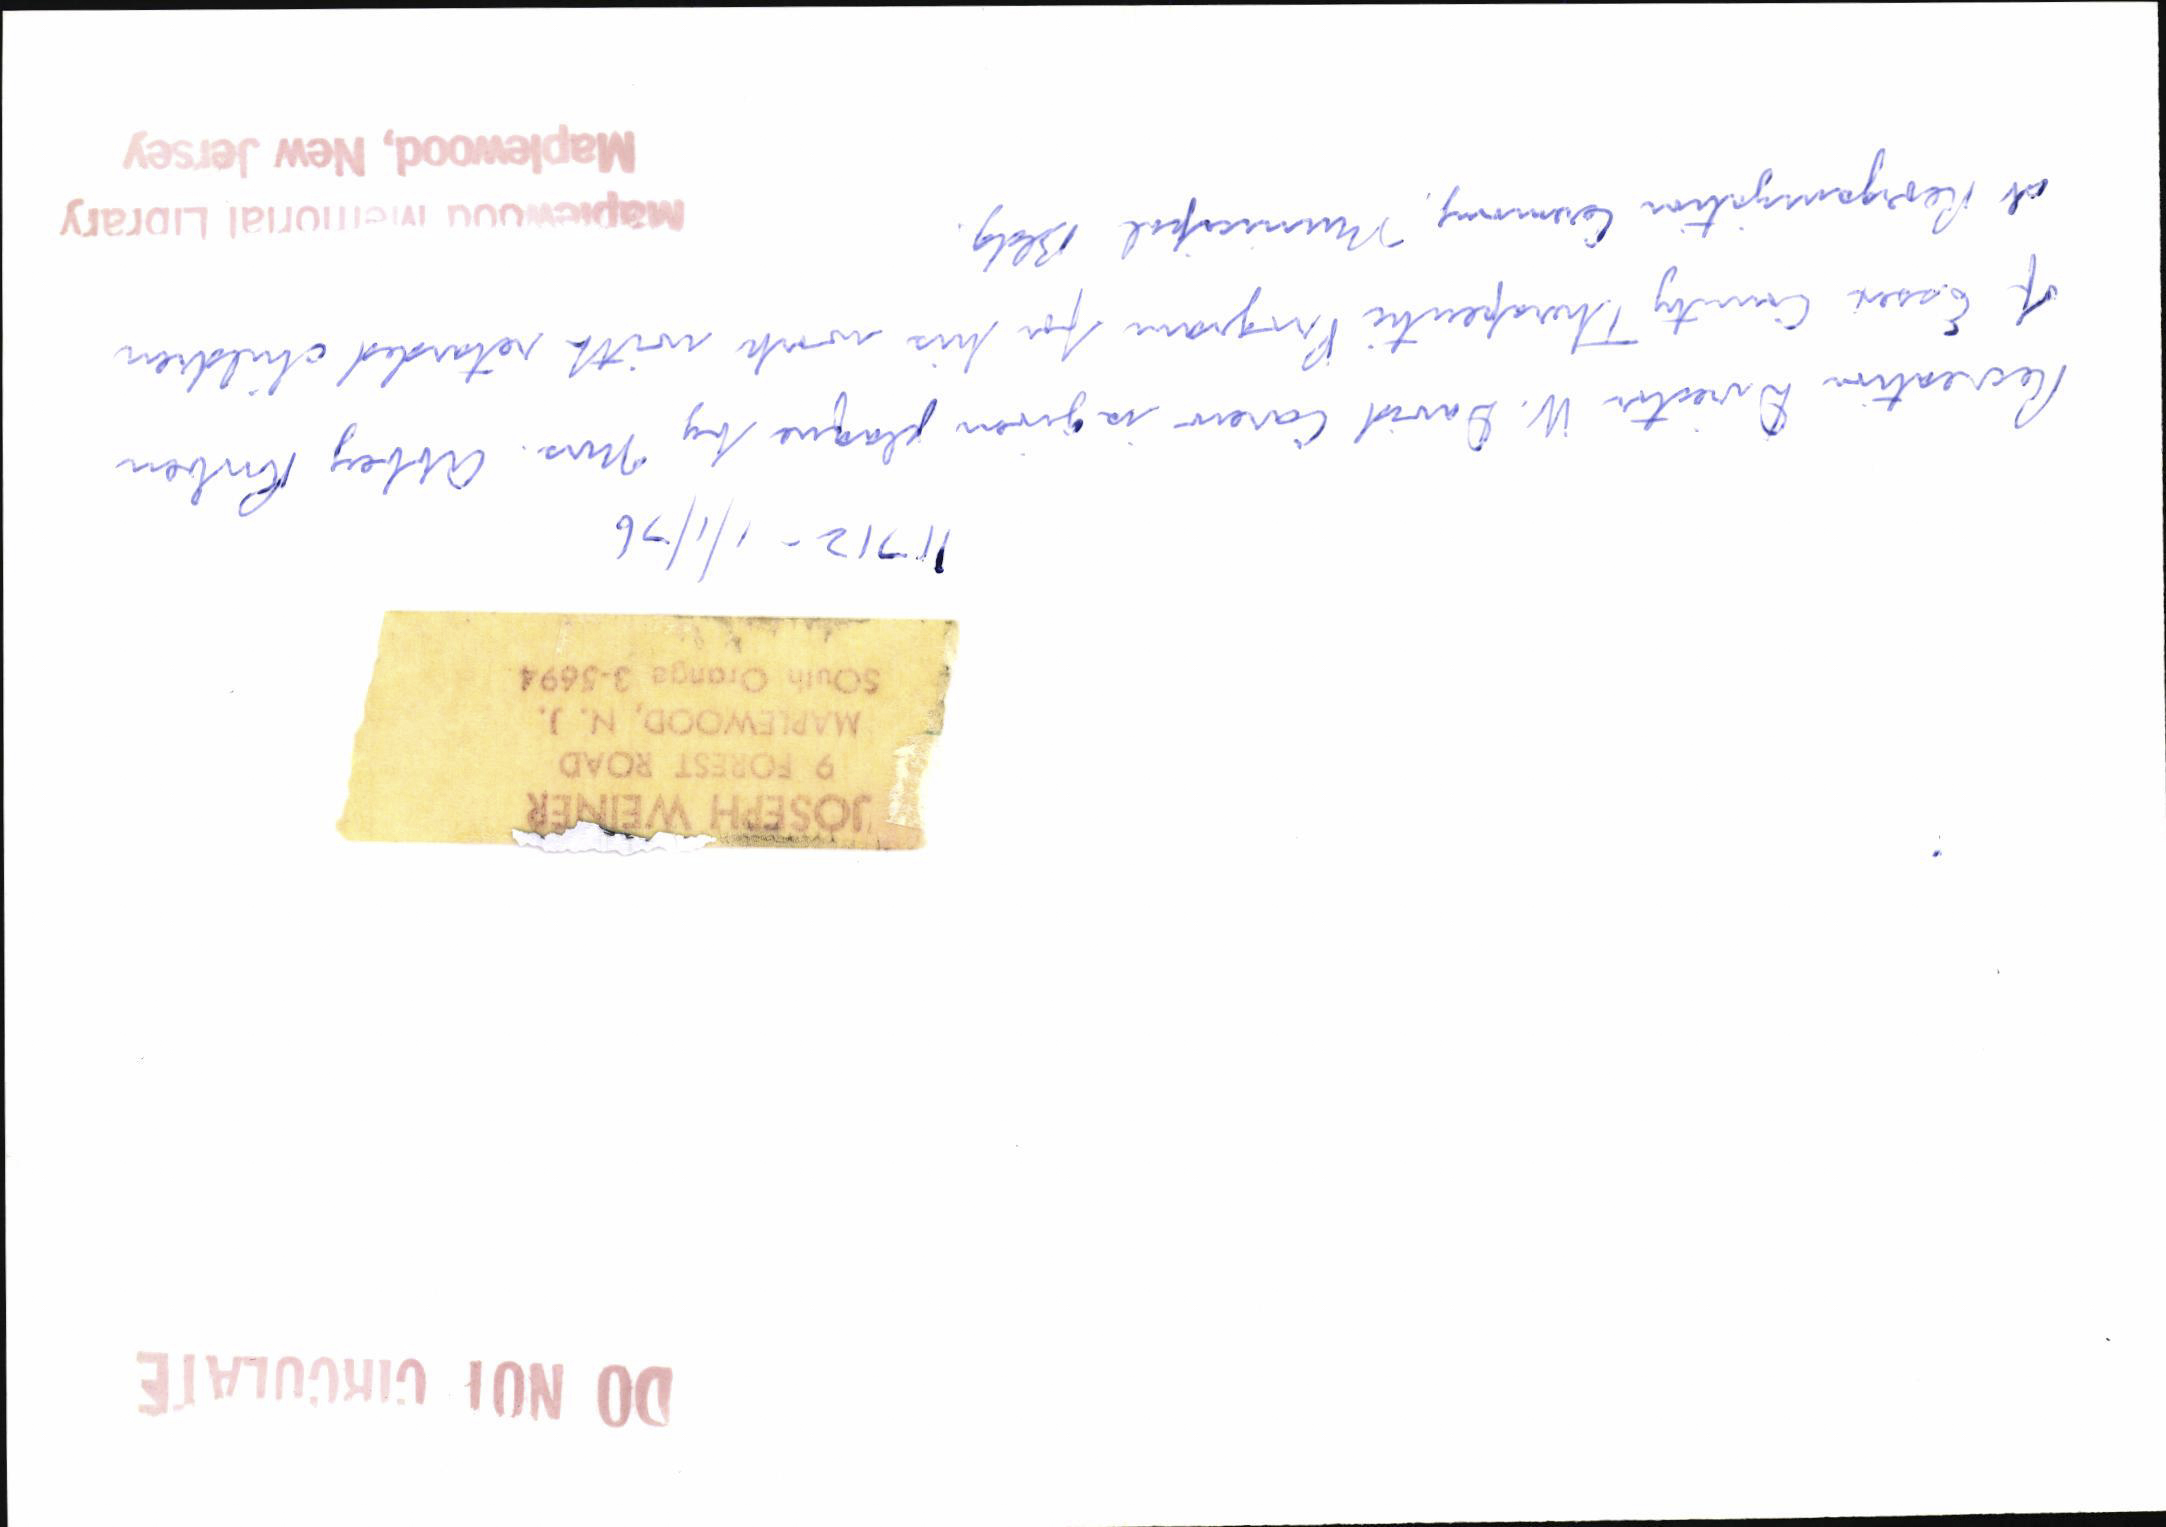 DO NOT CIRCULATE
JOSEPH WEINER
9 FOREST ROAD
MAPLEWOOD, N. J.
SOuth Orange 3-5694
11712 - 1/1/76
Recreation Director W. David Carew is given plaque by Mrs. Abbey
of Essex County Therapeutic Program for his work with retarded children
at Reorganization Municipal Bldg.
Maplewood Memorial Library
Maplewood, New Jersey